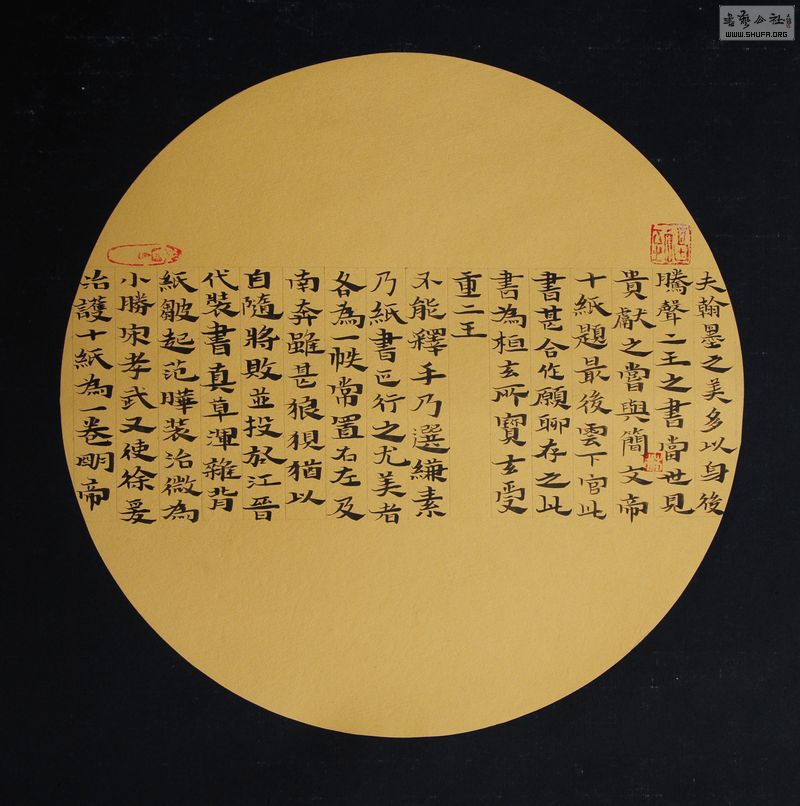 夫翰墨之美多以身後
騰聲二王之書當世見
貴獻之嘗與簡文帝
十紙題最後雲下官此
書甚合作願聊存之此
書為桓玄所寶玄愛
重二王
不能釋手乃選縑素
乃紙書正行之尤美者
各為一帙常置右左及
南奔雖甚狼狽猶以
自隨將敗並投於江晉
代裝書真草渾雜背
紙皺起范曄裝治微為
小勝宋孝武又使徐爰
治護十紙為一卷明帝
WWW.SHUFA.ORG